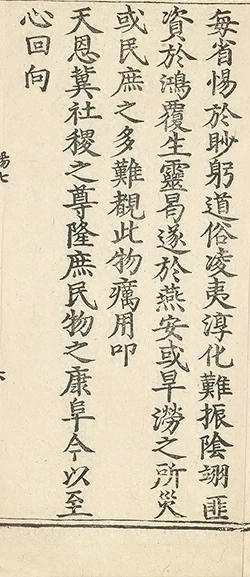 每省惕於眇躬道俗凌夷淳化難振陰翊匪
資於鴻覆生靈曷遂於燕安或旱澇之所災
或民庶之多難覩此物癘用叩
天恩冀社稷之尊隆庶民物之康阜今以至
心回向